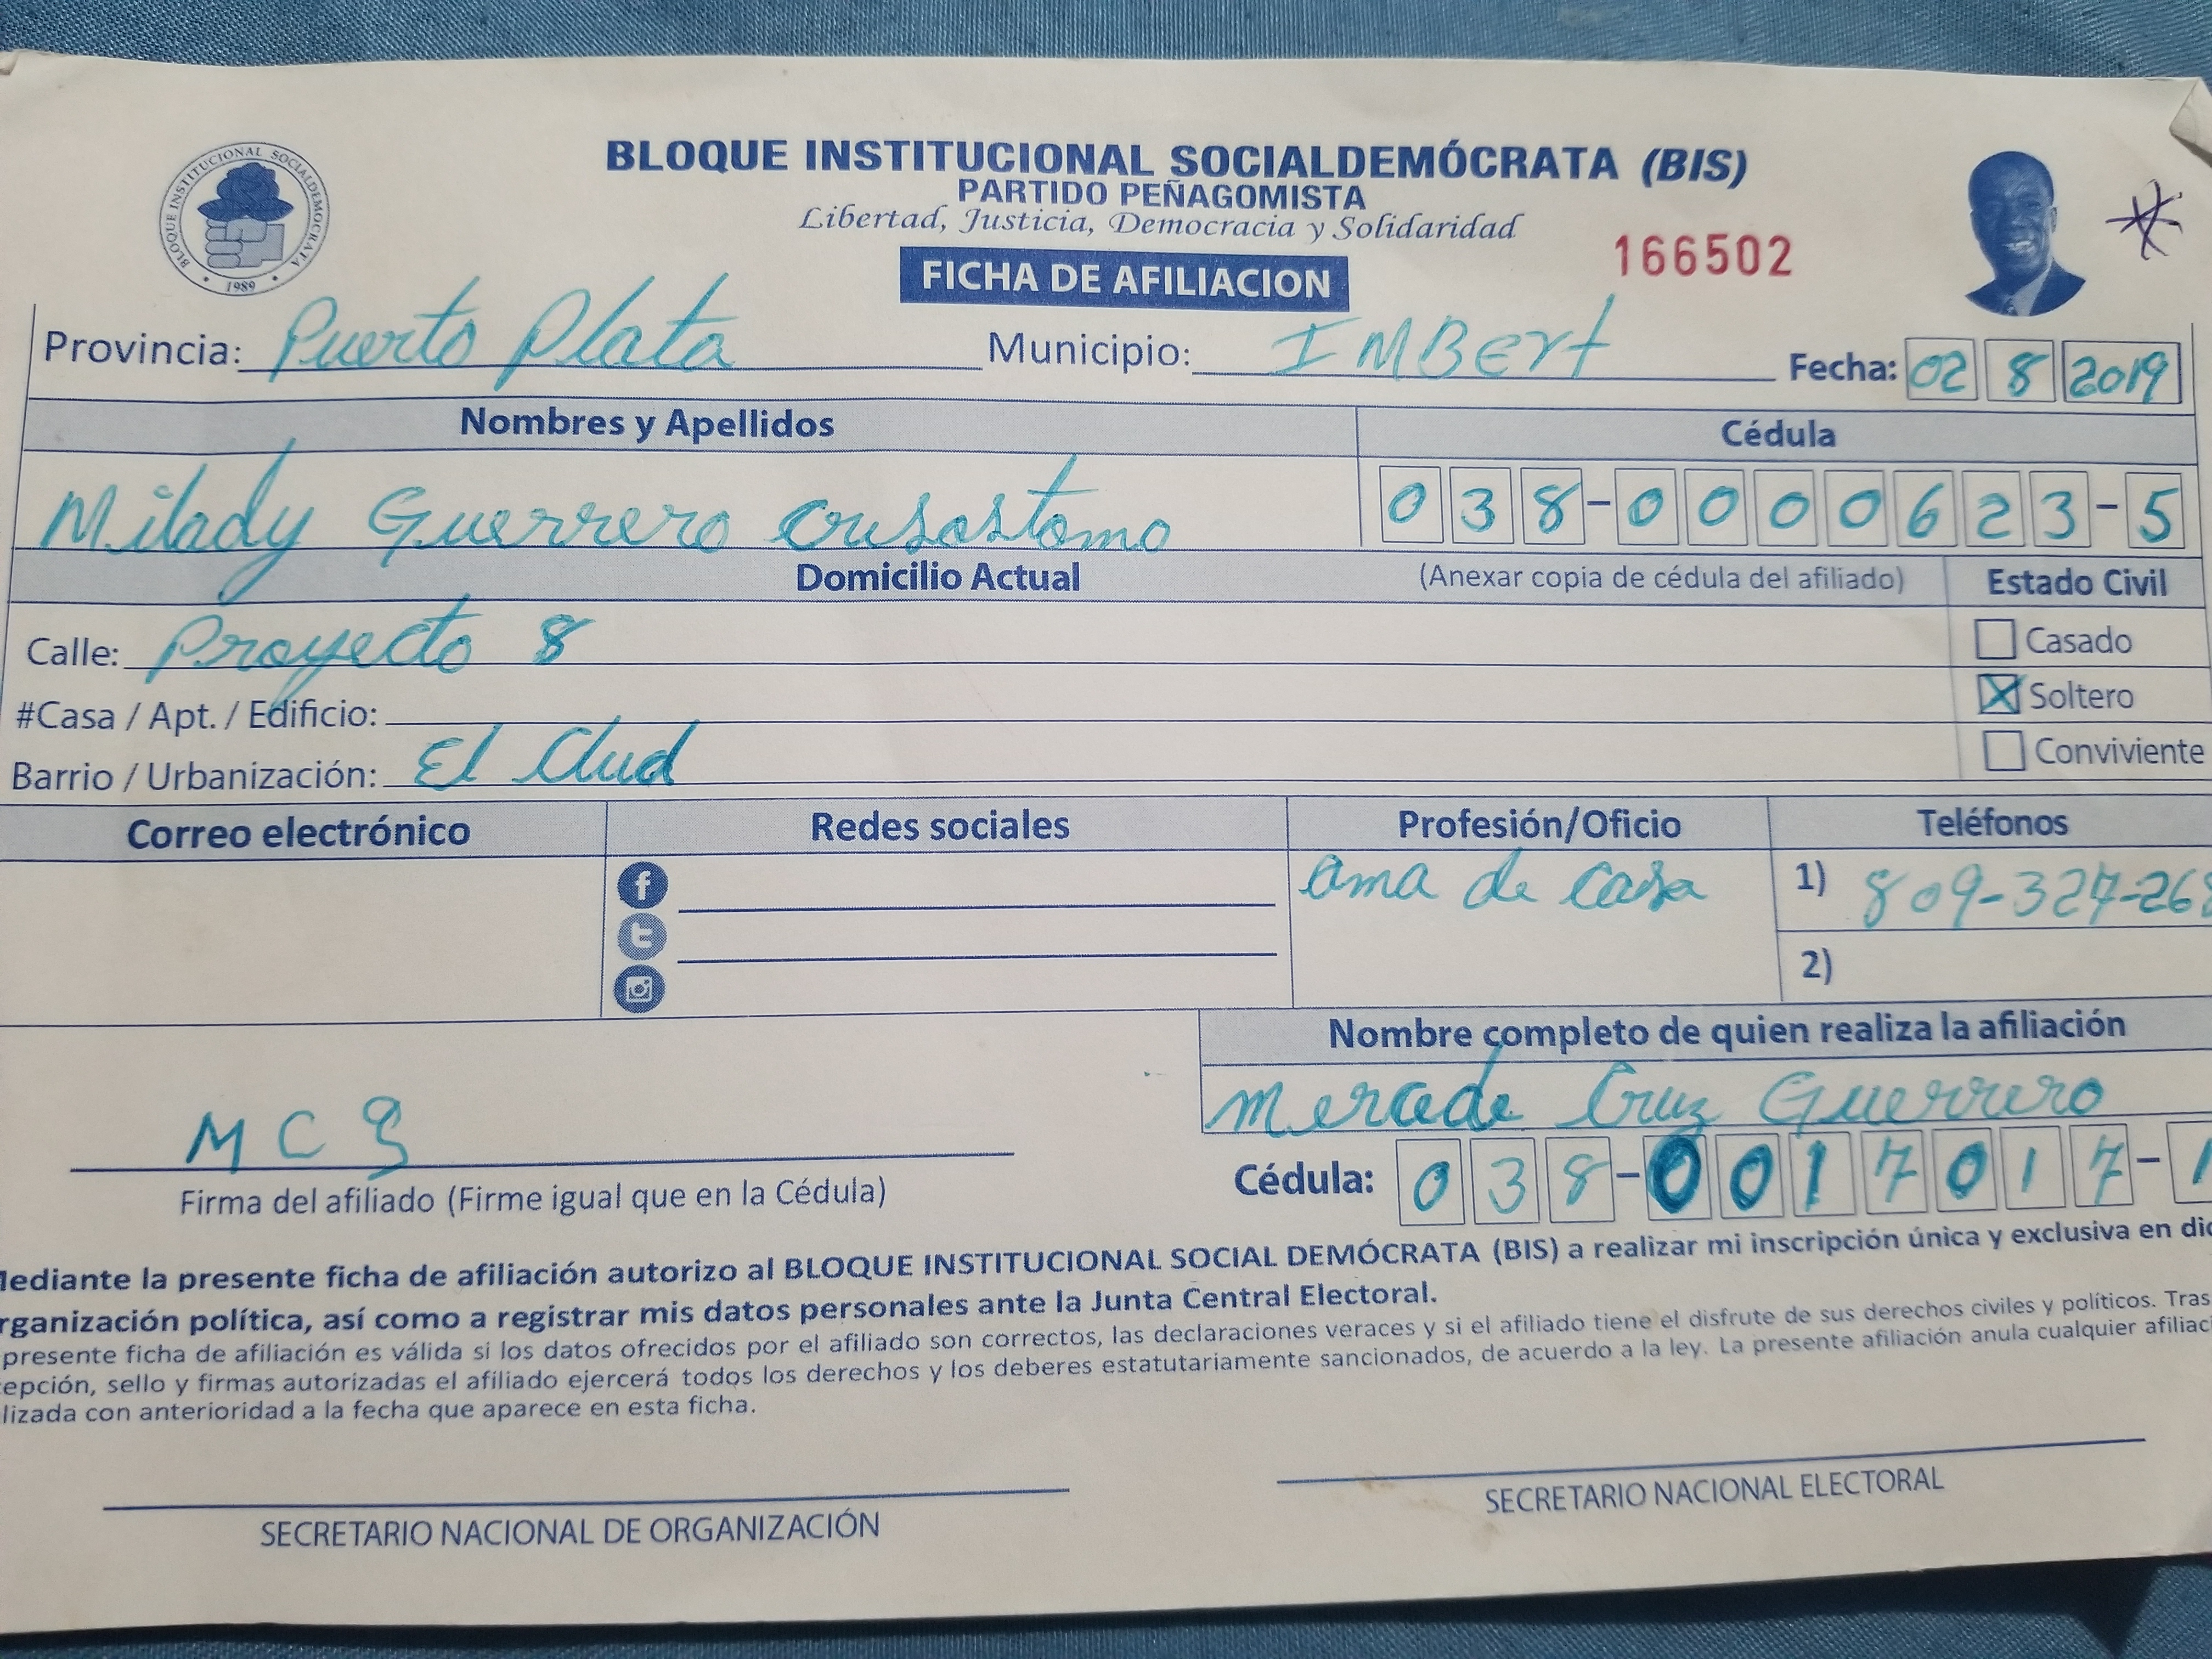 BLOQUE INSTITUCIONAL SOCIALDEMÓCRATA
1989
BLOQUE INSTITUCIONAL SOCIALDEMÓCRATA (BIS)
PARTIDO PEÑAGOMISTA
Libertad, Justicia, Democracia y Solidaridad
FICHA DE AFILIACION
166502
Provincia: Puerto Plata Municipio: IMBert Fecha: 02 8 2019
Nombres y Apellidos Cédula
Milady Guerrero Crusostomo 038-0000623-5
Domicilio Actual (Anexar copia de cédula del afiliado) Estado Civil
Calle: Proyecto 8 Casado
#Casa / Apt. / Edificio: X Soltero
Barrio / Urbanización: El Clud Conviviente
Correo electrónico Redes sociales Profesión/Oficio Teléfonos
f ama de casa 1) 809-327-268
2)
Nombre completo de quien realiza la afiliación
Mercede Cruz Guerrero
M C G
Firma del afiliado (Firme igual que en la Cédula) Cédula: 038-0017017-1
Mediante la presente ficha de afiliación autorizo al BLOQUE INSTITUCIONAL SOCIAL DEMÓCRATA (BIS) a realizar mi inscripción única y exclusiva en dic
rganización política, así como a registrar mis datos personales ante la Junta Central Electoral.
presente ficha de afiliación es válida si los datos ofrecidos por el afiliado son correctos, las declaraciones veraces y si el afiliado tiene el disfrute de sus derechos civiles y políticos. Tras
epción, sello y firmas autorizadas el afiliado ejercerá todos los derechos y los deberes estatutariamente sancionados, de acuerdo a la ley. La presente afiliación anula cualquier afiliac
lizada con anterioridad a la fecha que aparece en esta ficha.
SECRETARIO NACIONAL DE ORGANIZACIÓN SECRETARIO NACIONAL ELECTORAL